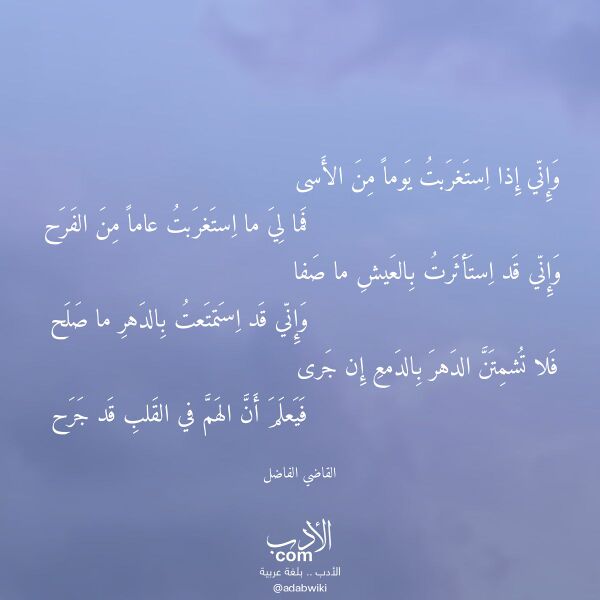 وَإِنّي إِذا اِستَغرَبتُ يَوماً مِنَ الأَسى
فَما لِيَ ما اِستَغرَبتُ عاماً مِنَ الفَرَح
وَإِنّي قَد اِستَأثَرتُ بِالعَيشِ ما صَفا
وَإِنّي قَد اِستَمتَعتُ بِالدَهرِ ما صَلَح
فَلا تُشمِتَنَّ الدَهرَ بِالدَمعِ إِن جَرى
فَيَعلَمَ أَنَّ الهَمَّ في القَلبِ قَد جَرَح
القاضي الفاضل
الأدب
com
الأدب .. بلغة عربية
@adabwiki